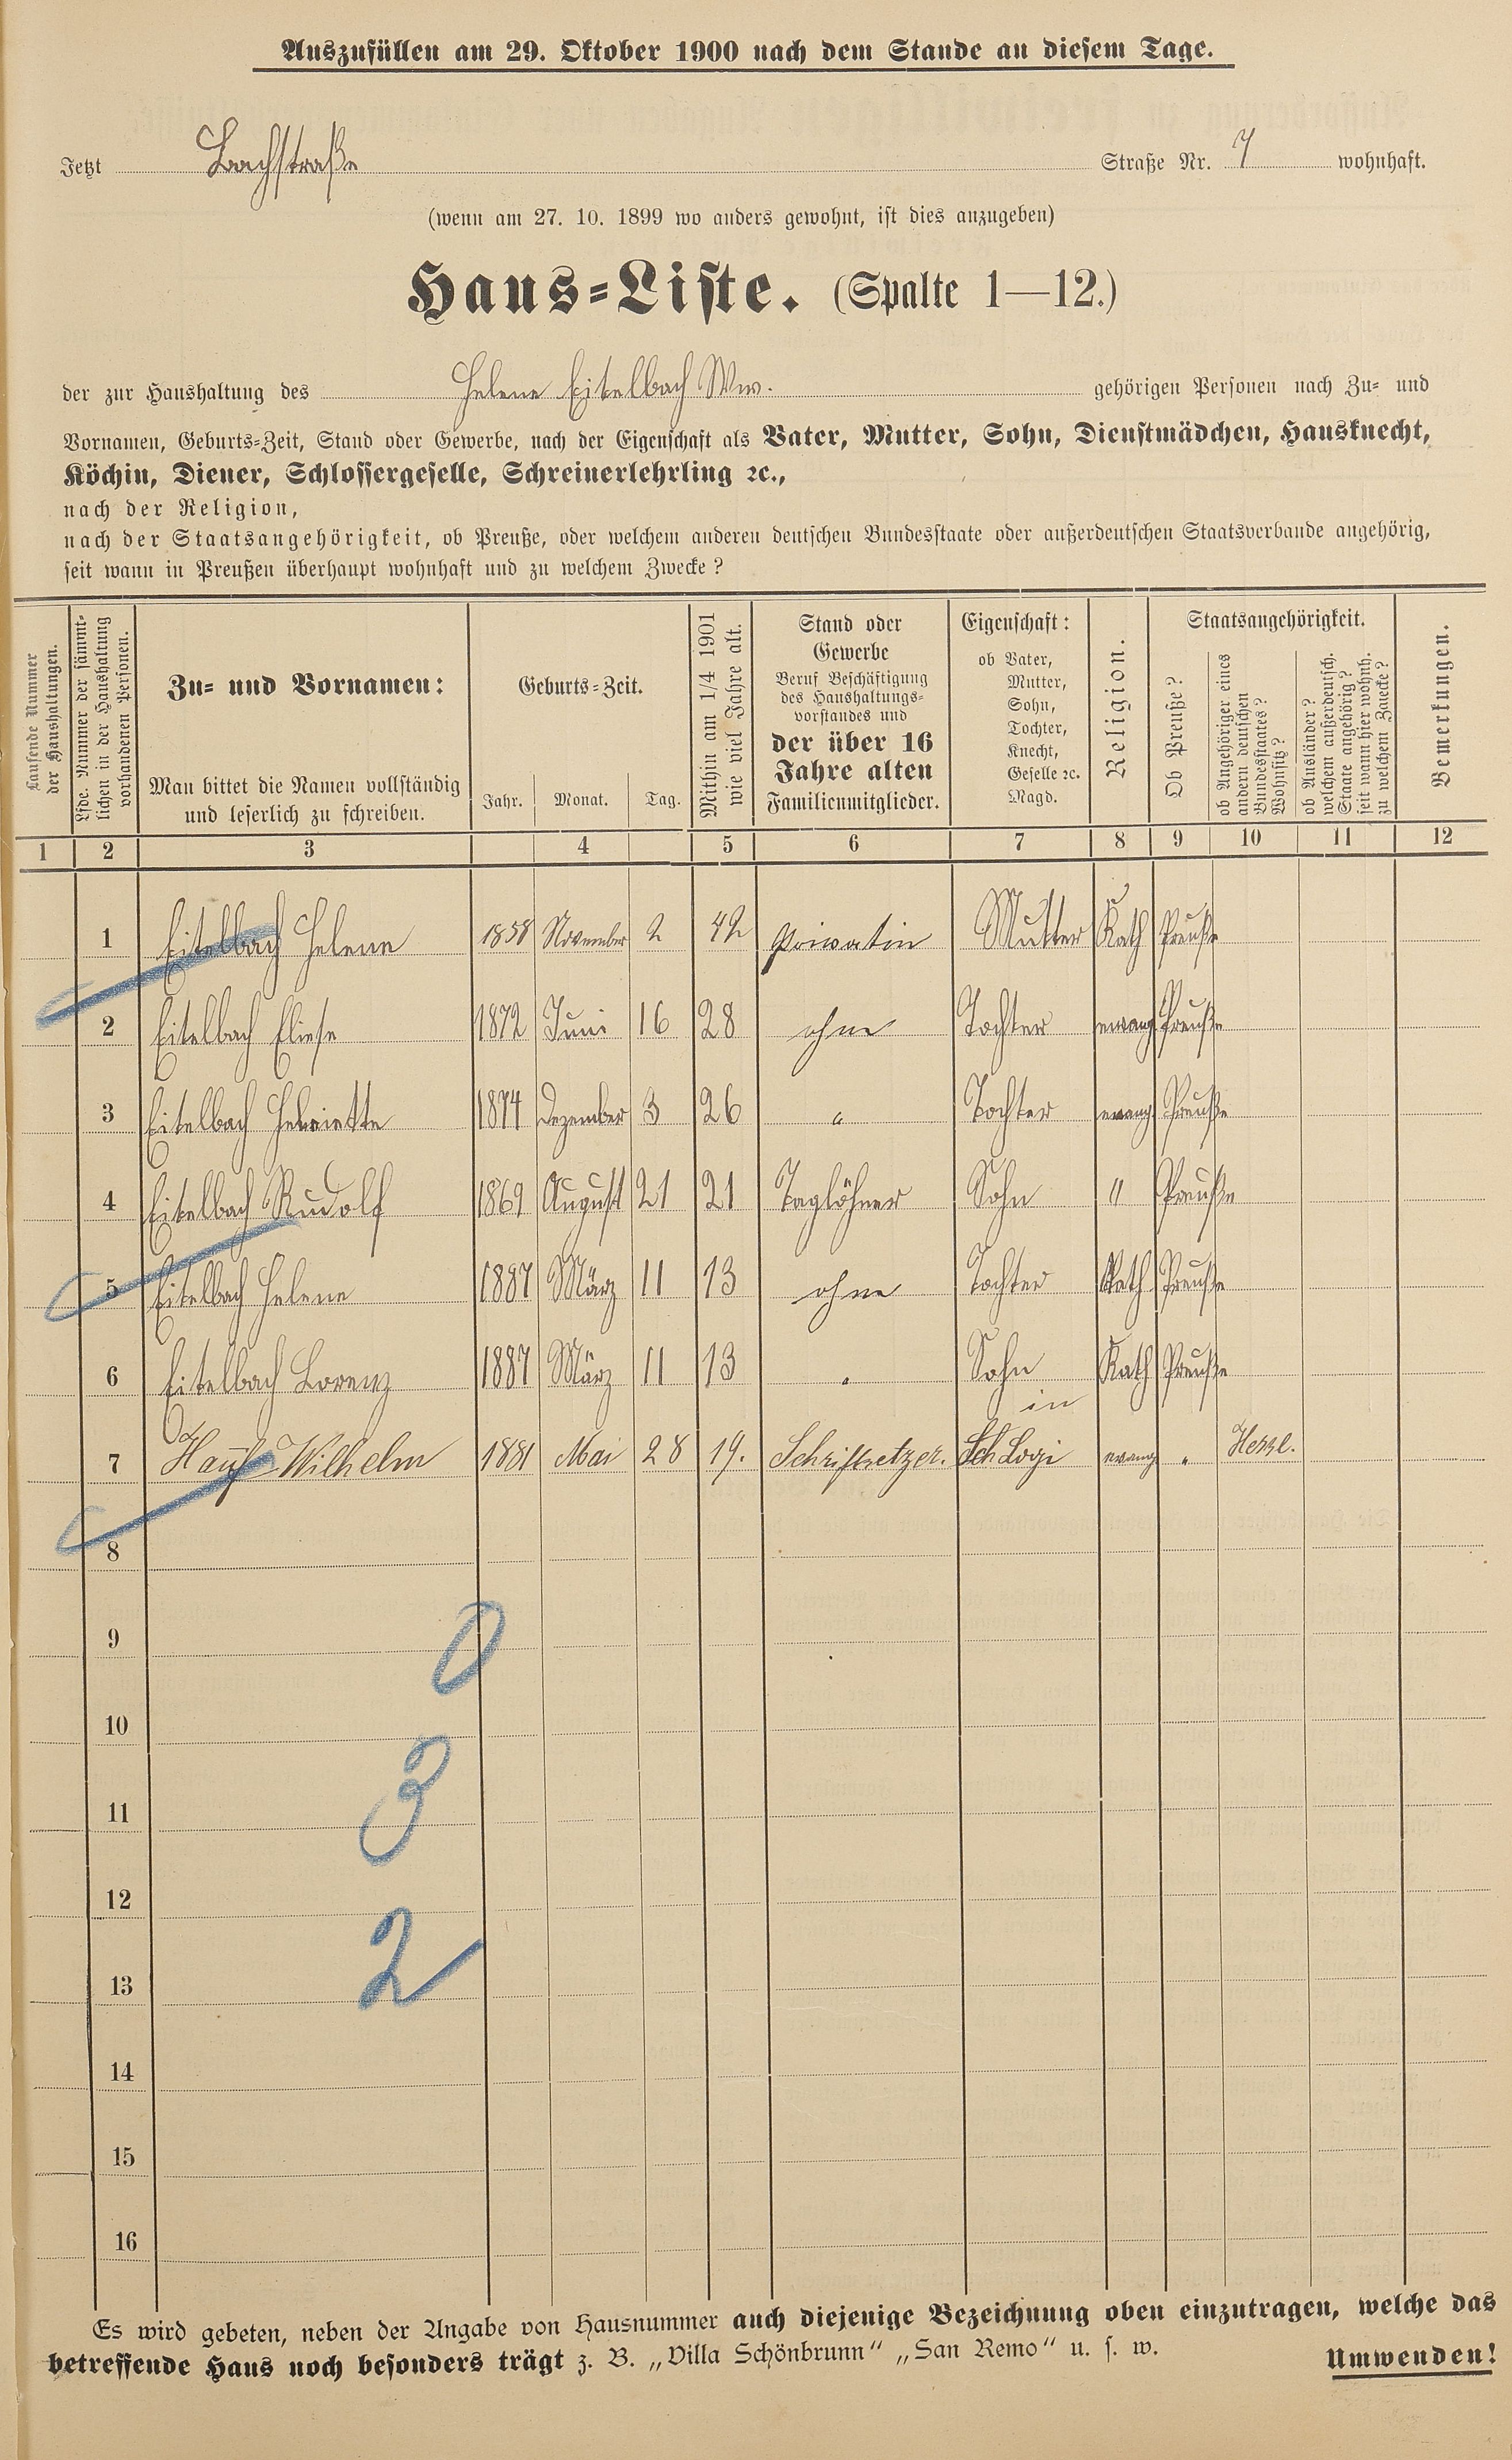 Auszufüllen am 29. Oktober 1900 nach dem Stande an diesem Tage.
Jetzt Bachstraße Straße Nr. 7 wohnhaft.
(wenn am 27. 10. 1899 wo anders gewohnt, ist dies anzugeben)
Haus-Liste. (Spalte 1—12.)
der zur Haushaltung des Helene Eitelbach Ww. gehörigen Personen nach Zu- und
Vornamen, Geburts-Zeit, Stand oder Gewerbe, nach der Eigenschaft als Vater, Mutter, Sohn, Dienstmädchen, Hausknecht,
Köchin, Diener, Schlossergeselle, Schreinerlehrling ꝛc.,
nach der Religion,
nach der Staatsangehörigkeit, ob Preuße, oder welchem anderen deutschen Bundesstaate oder außerdeutschen Staatsverbande angehörig,
seit wann in Preußen überhaupt wohnhaft und zu welchem Zwecke?
Laufende Nummer
der Haushaltungen.
Lfde. Nummer der sämmt-
lichen in der Haushaltung
vorhandenen Personen.
Zu- und Vornamen:
Man bittet die Namen vollständig
und leserlich zu schreiben.
Geburts-Zeit.
Jahr. Monat. Tag.
Mithin am 1/4 1901
wie viel Jahre alt.
Stand oder
Gewerbe
Beruf Beschäftigung
des Haushaltungs-
vorstandes und
der über 16
Jahre alten
Familienmitglieder.
Eigenschaft:
ob Vater,
Mutter,
Sohn,
Tochter,
Knecht,
Geselle ꝛc.
Magd.
Religion.
Staatsangehörigkeit.
Ob Preuße?
ob Angehöriger eines
andern deutschen
Bundesstaates?
Wohnsitz?
ob Ausländer?
welchem außerdeutsch.
Staate angehörig?
seit wann hier wohnh.
zu welchem Zwecke?
Bemerkungen.
1 2 3 4 5 6 7 8 9 10 11 12
1 Eitelbach Helene 1858 November 2 42 Privatin Mutter Kath Preuße
2 Eitelbach Eliese 1872 Juni 16 28 ohne Tochter evang Preuße
3 Eitelbach Henriette 1874 Dezember 3 26 " Tochter evang Preuße
4 Eitelbach Rudolf 1869 August 21 21 Taglöhner Sohn " Preuße
5 Eitelbach Helene 1887 März 11 13 ohne Tochter Kath Preuße
6 Eitelbach Lorenz 1887 März 11 13 " Sohn Kath Preuße
in
7 Wilhelm 1881 Mai 28 19. Schriftsetzer. Logi evang "
8
9
0
10
11
3
12
13
2
14
15
16
Es wird gebeten, neben der Angabe von Hausnummer auch diejenige Bezeichnung oben einzutragen, welche das
betreffende Haus noch besonders trägt z. B. „Villa Schönbrunn“ „San Remo“ u. s. w.
Umwenden!